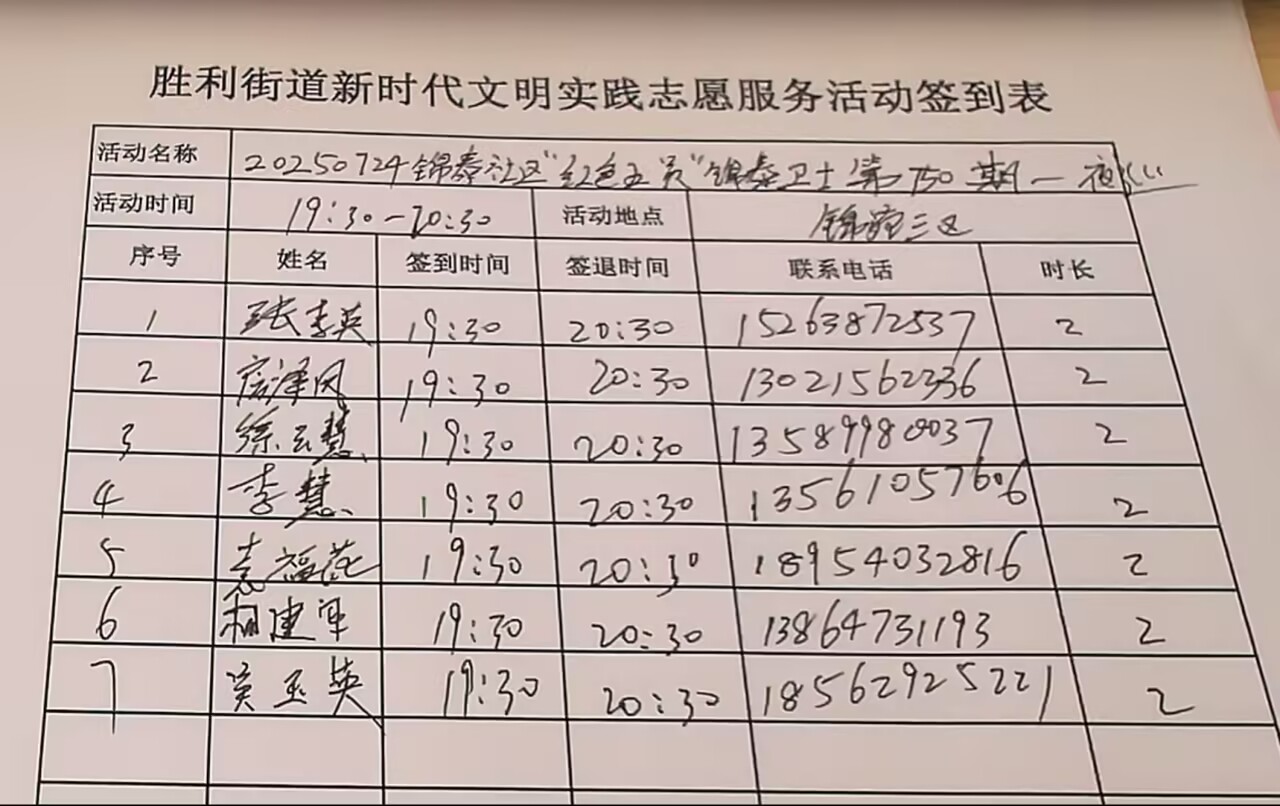 胜利街道新时代文明实践志愿服务活动签到表
活动名称 20250724锦泰社区"红色五员"锦泰卫士第150期一夜巡
活动时间 19:30-20:30 活动地点 锦苑三区
序号 姓名 签到时间 签退时间 联系电话 时长
1 张李英 19:30 20:30 15263872537 2
2 房泽凤 19:30 20:30 13021562336 2
3 徐云慧 19:30 20:30 13589980037 2
4 李慧 19:30 20:30 13561057606 2
5 袁福莲 19:30 20:30 18954032816 2
6 相建军 19:30 20:30 13864731193 2
7 吴玉英 19:30 20:30 18562925221 2